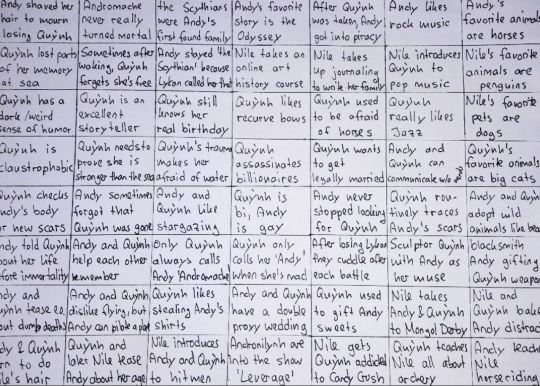 Andy shaved her hair to mourn losing Quỳnh
Andromache never really turned mortal
the Scythians were Andy's first found family
Andy's favorite story is the Odyssey
After Quỳnh was taken, Andy got into piracy
Andy likes rock music
Andy's favorite animals are horses
Quỳnh lost parts of her memory at sea
Sometimes after waking, Quỳnh forgets she's free
Andy stayed 'the Scythian' because Lykon called her that
Nile takes an online art history course
Nile takes up journaling to write her family
Nile introduces Quỳnh to pop music
Nile's favorite animals are penguins
Quỳnh has a dark/weird sense of humor
Quỳnh is an excellent storyteller
Quỳnh still knows her real birthday
Quỳnh likes recurve bows
Quỳnh used to be afraid of horses
Quỳnh really likes Jazz
Nile's favorite pets are dogs
Quỳnh is claustrophobic
Quỳnh needs to prove she is stronger than the sea
Quỳnh's trauma makes her afraid of water
Quỳnh assassinates billionaires
Quỳnh wants to get legally married
Andy and Quỳnh can communicate w/o
Quỳnh's favorite animals are big cats
Quỳnh checks Andy's body for new scars
Andy sometimes forgot that Quỳnh was gone
Andy and Quỳnh like stargazing
Quỳnh is bi, Andy is gay
Andy never stopped looking for Quỳnh
Quỳnh routinely traces Andy's scars
Quỳnh and Andy adopt wild animals like
Andy told Quỳnh about her life before immortality
Andy and Quỳnh help each other remember
Only Quỳnh always calls Andy 'Andromache'
Quỳnh only calls her 'Andy' when she's mad
After losing Lykon they cuddle after each battle
Sculptor Quỳnh with Andy as her muse
blacksmith Andy gifting Quỳnh weapons
Andy and Quỳnh tease e.o. about dumb deaths
Andy and Quỳnh dislike flying, but Andy can pilot a plane
Quỳnh likes stealing Andy's shirts
Andy and Quỳnh have a double proxy wedding
Quỳnh used to gift Andy sweets
Nile takes Andy & Quỳnh to Mongol Derby
Nile and Quỳnh bake, Andy distracts
Andy & Quỳnh learn to do Nile's hair
Quỳnh and later Nile tease Andy about her age
Nile introduces Andy and Quỳnh to hitmen
Andronilynh are into the show 'Leverage'
Nile gets Quỳnh addicted to Candy Crush
Quỳnh teaches Nile all about archery
Andy teaches Nile horseriding